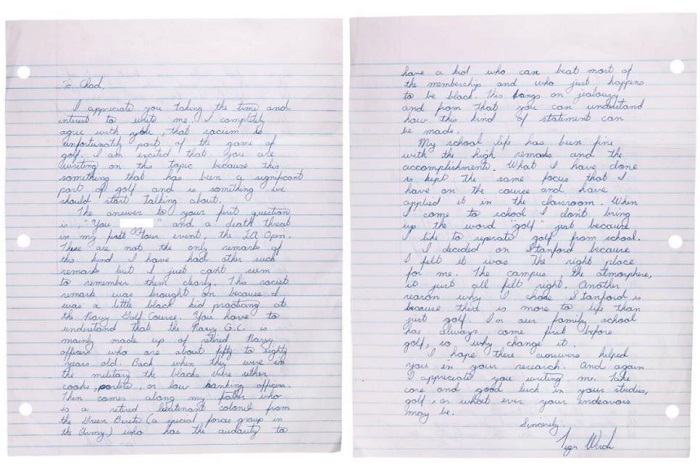 To Chad,
I appreciate you taking the time and
interest to write me. I completely
agree with you, that racism is
unfortunatly part of the game of
golf. I am excited that you are
writing on this topic because this
something that has been a significant
part of golf and is something we
should start talking about.
The answer to your first question
is, "You " and a death threat
in my first tour event, the LA Open.
These are not the only remarks of
this kind I have had other such
remarks but I just cant
to remember them clearly. This racist
remark was brought on because I
was a little black kid practicing at
the Navy Golf Course. You have to
understand that the Navy G.C. is
mainly made up of retired Navy
officers who are about fifty to eighty
years old. Back when they were in
the military the blacks were either
cooks, , or low ranking officers.
Then comes along my father who
is a retired lieutenant colonel from
the Green Berets (a special forces group in
the Army) who has the audacity to
have a kid who can beat most of
the membership and who just happens
to be black. This brings on jealousy
and from that you can understand
how this kind of statement can
be made.
My school life has been fine
with the high remarks and the
accomplishments. What I have done
is kept the same focus that I
have on the course and have
applied it in the classroom. When
I come to school I don't bring
up the word "golf" just because
I like to separate golf from school.
I decided on Stanford because
I felt it was the right place
for me. The campus, the atmosphere,
it just all felt right. Another
reason why I chose Stanford is
because there is more to life than
just golf. In our family school
has always come first before
golf, so why change it.
I hope these answers helped
you in your research. And again
I appreciate you writing me. Take
care and good luck in your studies,
golf, or what ever your endeavors
may be.
Sincerely,
Tiger Woods